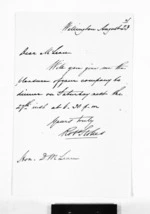 Wellington August 23
Dear McLean
Will you give me the
pleasure of your company to
dinner on Saturday next the
27th inst at 6.30 p.m.
Yours truly
Hon. D McLean